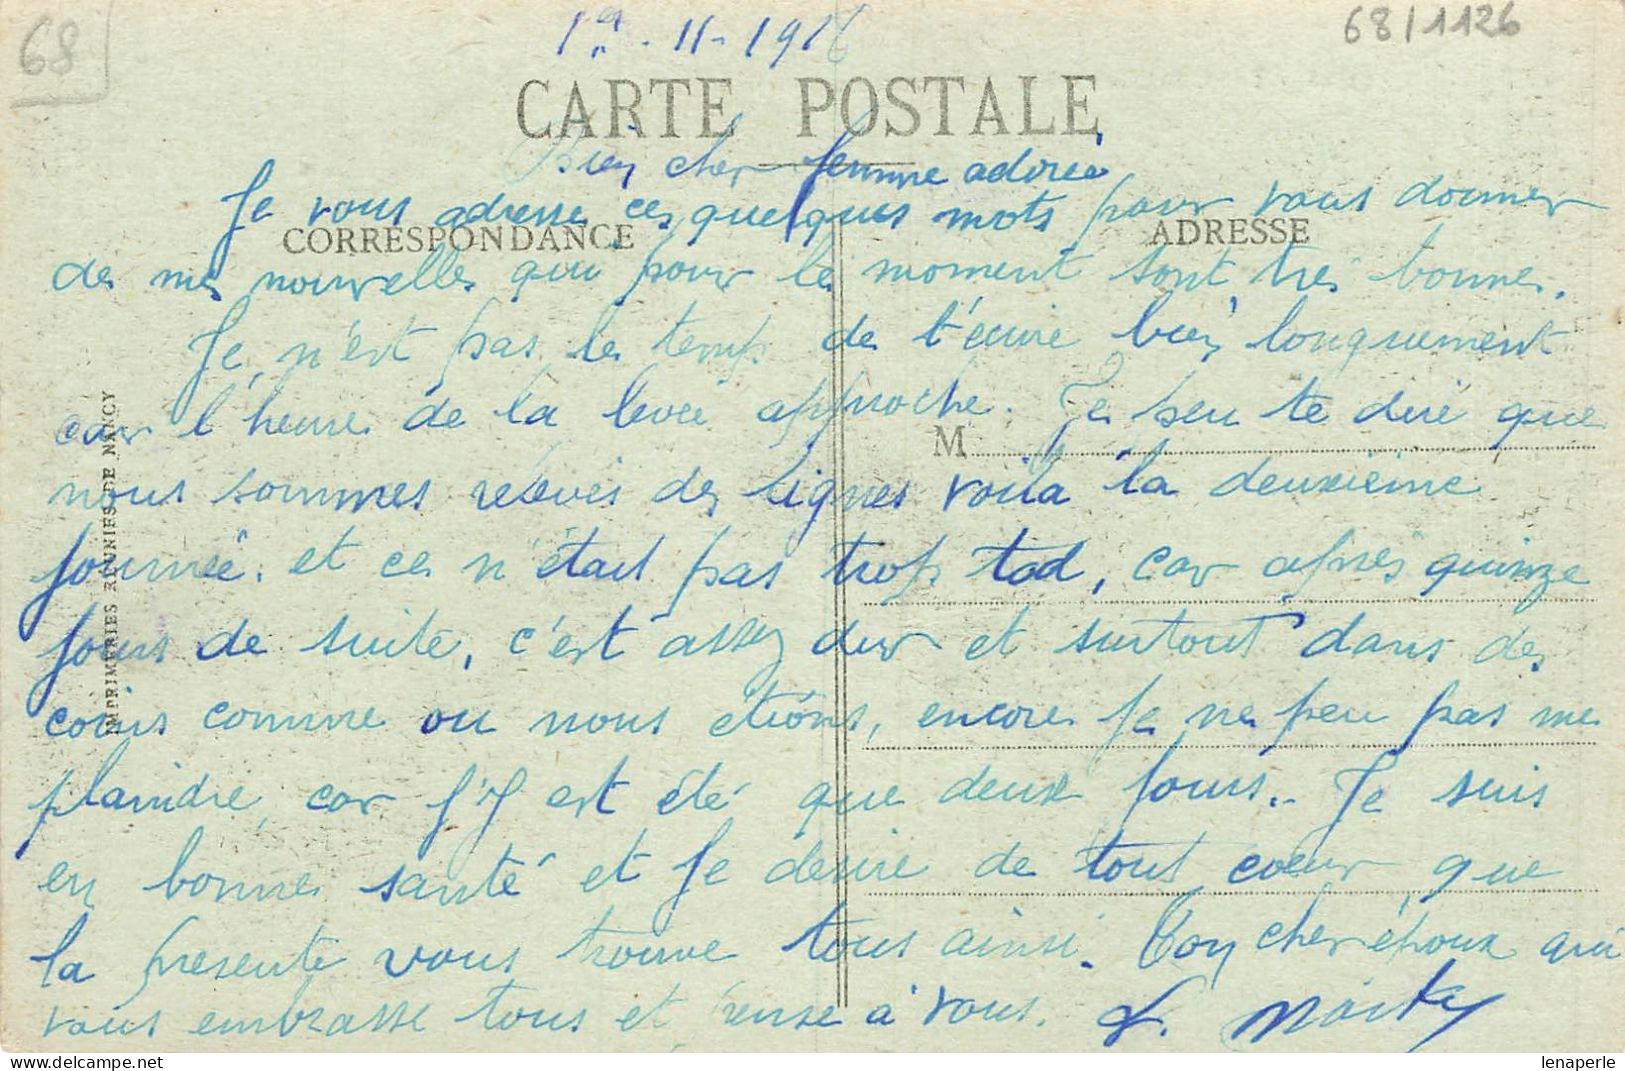 68
68/1126
1er-11-1916
CARTE POSTALE
Bien cher femme adorée
Je vous adresse ces quelques mots pour vous donner
CORRESPONDANCE
ADRESSE
de mes nouvelles qui pour le moment sont très bonnes.
Je n'est pas le temps de t'écrire bien longuement
car l'heure de la levée approche. Je peu te dire que
M
nous sommes relevés des lignes voila la deuxième
journée. et ce n'était pas trop tod, car après quinze
jours de suite, c'est assez dur et surtout dans des
coins comme ou nous étions, encore je ne peu pas me
plaindre, car j'y est été que deux jours.. Je suis
en bonne santé et je desire de tout coeur que
la presente vous trouve tous ainsi. Ton cher époux qui
vous embrasse tous et pense à vous.
IMPRIMERIES REUNIES DE NANCY
lenaperle